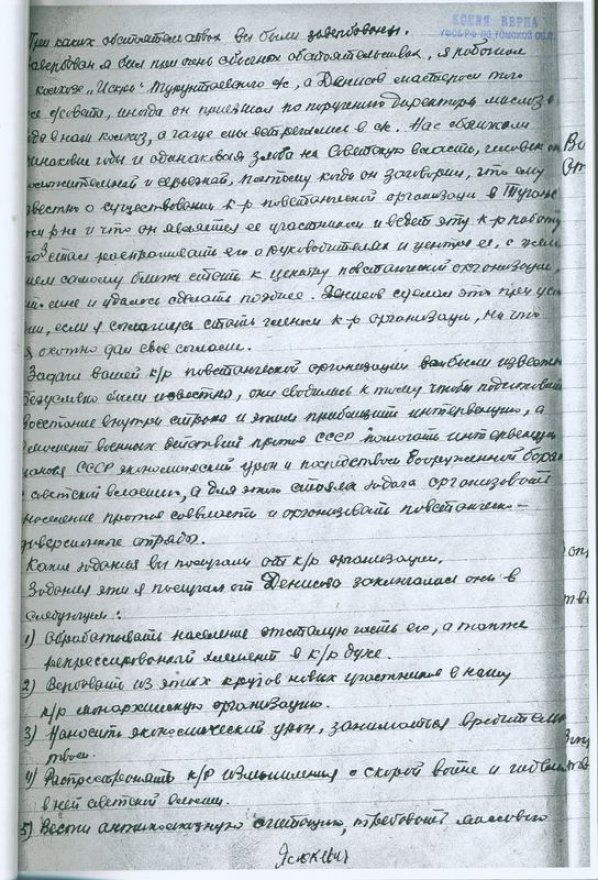 КОПИЯ ВЕРНА
УФСБ РФ ПО ТОМСКОЙ ОБЛ.
При каких обстоятельствах вы были завербованы.
завербован я был при обстоятельствах, я работал
колхозе "Искра" Туруптаевского с/с, а Денисов мастером того
же с/совета, иногда он приезжал по поручению директора маслоза
вода в наш колхоз, а чаще мы встречались в с/с. Нас сближали
одинаковые годы и одинаковая злоба на Советскую власть, человек он
положительный и серьезный, поэтому когда он заговорил, что ему
известно о существовании к-р повстанческой организации в Туган
ском р-не и что он является ее участником и ведет эту к-р работу
стал расспрашивать его о руководителях и центре ее, с жела
нием самому ближе стать к центру повстанческой организации,
мне и удалось сделать позднее. Денисов сделал это при усло
вии, если я соглашусь стать членом к-р организации, на что
я охотно дал свое согласие.
Задачи вашей к/р повстанческой организации вам были известны
Безусловно были известны, они сводились к тому чтобы подготовить
восстание внутри страны и этим приблизить интервенцию, а
в момент военных действий против СССР помогать интервенции
СССР экономический урон и посредством вооруженной борь
с советской властью, а для этого стояла задача организовать
население против соввласти и организовать повстанческо-
диверсионные отряды.
Какие задания вы получали от к/р организации.
Задания эти я получал от Денисова заключались они в
следующем:
1) Обрабатывать население отсталую часть его, а также
репрессированный элемент в к/р духе.
2) Вербовать из этих кругов новых участников в нашу
к/р монархическую организацию.
3) Наносить экономический урон, заниматься вредитель
ством.
4) Распространять к/р измышления о скорой войне и гибели
в ней советской власти.
5) Вести антиколхозную агитацию, требовать массового
Яслюкевич